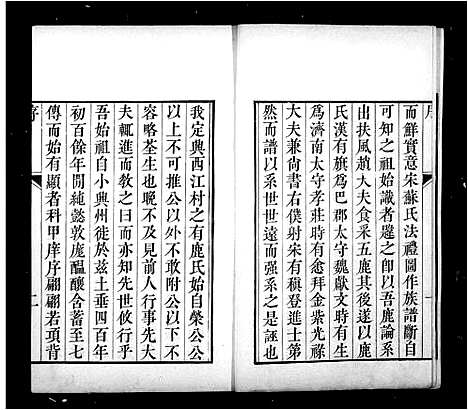 序
而鮮實意宋蘇氏法禮圖作族譜斷自
可知之祖始識者韙之即以吾鹿論系
出扶風趙大夫食采五鹿其後遂以鹿
氏漢有旗爲巴郡太守魏獻文時有生
爲濟南太守孝莊時有悆拜金紫光祿
大夫兼尚書右僕射宋有稹登進士第
然而譜以系世世遠而强系之是誣也
一
我定興西江村之有鹿氏始自榮公公
以上不可推公以下不敢附公以下又
容略荃生也晚不及見前人行事先大
夫輒進而敎之曰而亦知先世攸行乎
吾始祖自小興州徙於茲土垂四百年
初百餘年閒純懿敦龐醖釀含蓄至七
傳而始有顯者科甲庠序翩翩若項背
序
二